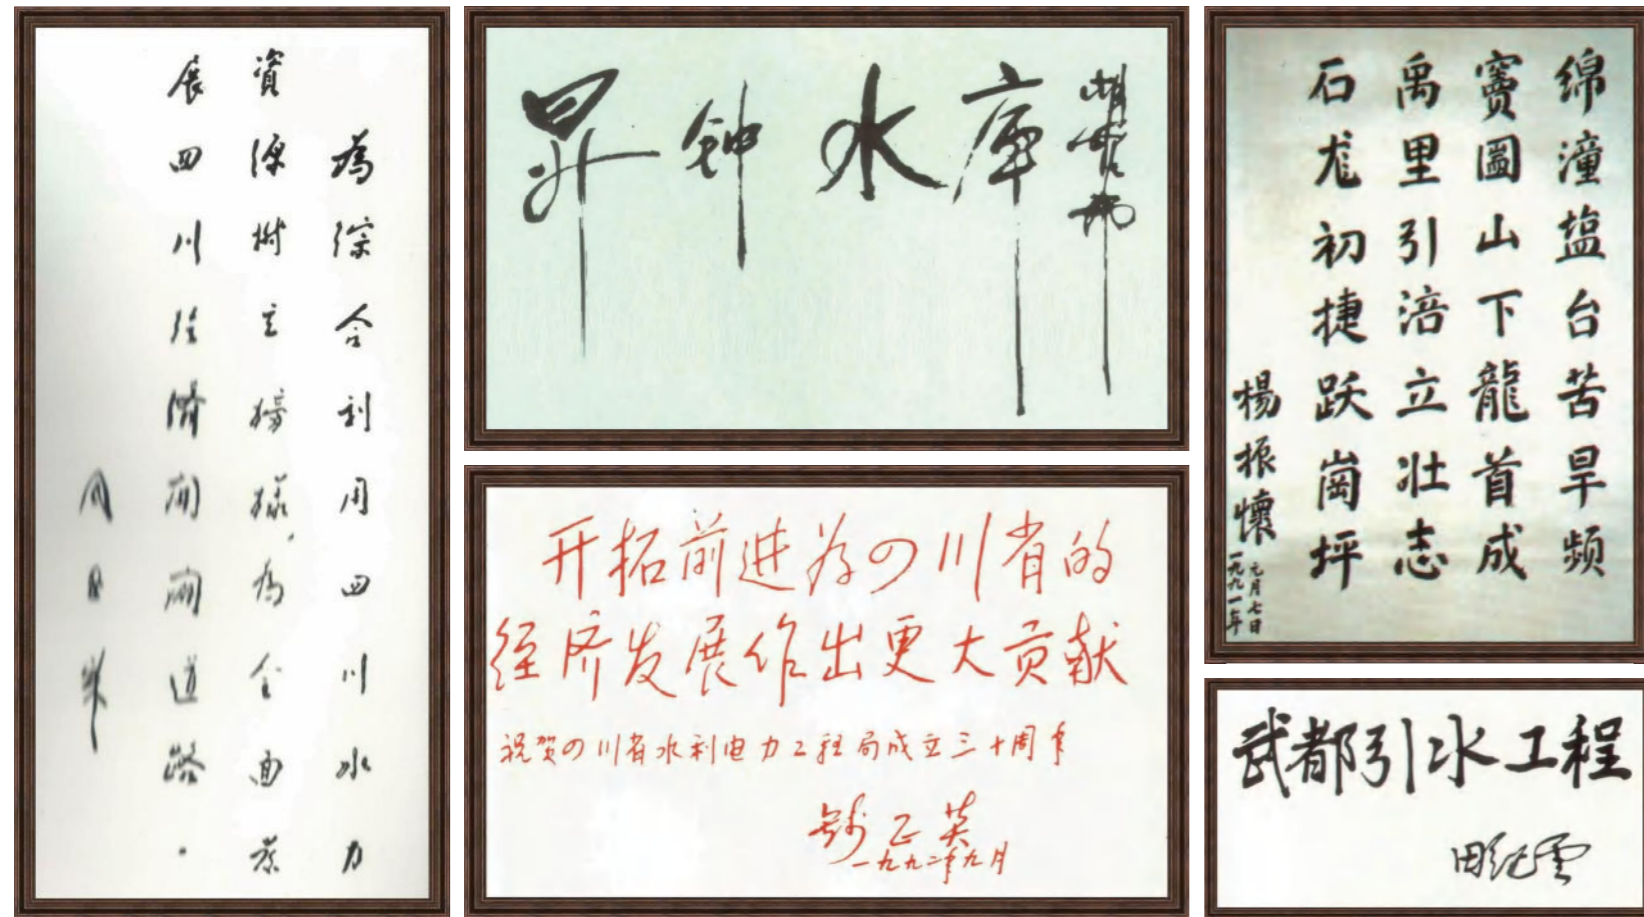 為综合利用四川水力
資源树立榜樣為全面發
展四川经濟開闢道路.
昇钟水库
开拓前进为四川省的
经济发展作出更大贡献
祝贺四川省水利电力工程局成立三十周年
钱正英
一九九二年九月
绵潼塩台苦旱频
窦圖山下龍首成
禹里引涪立壮志
石龙初捷跃崗坪
楊振懷
一九九一年
元月七日
武都引水工程
田纪雲